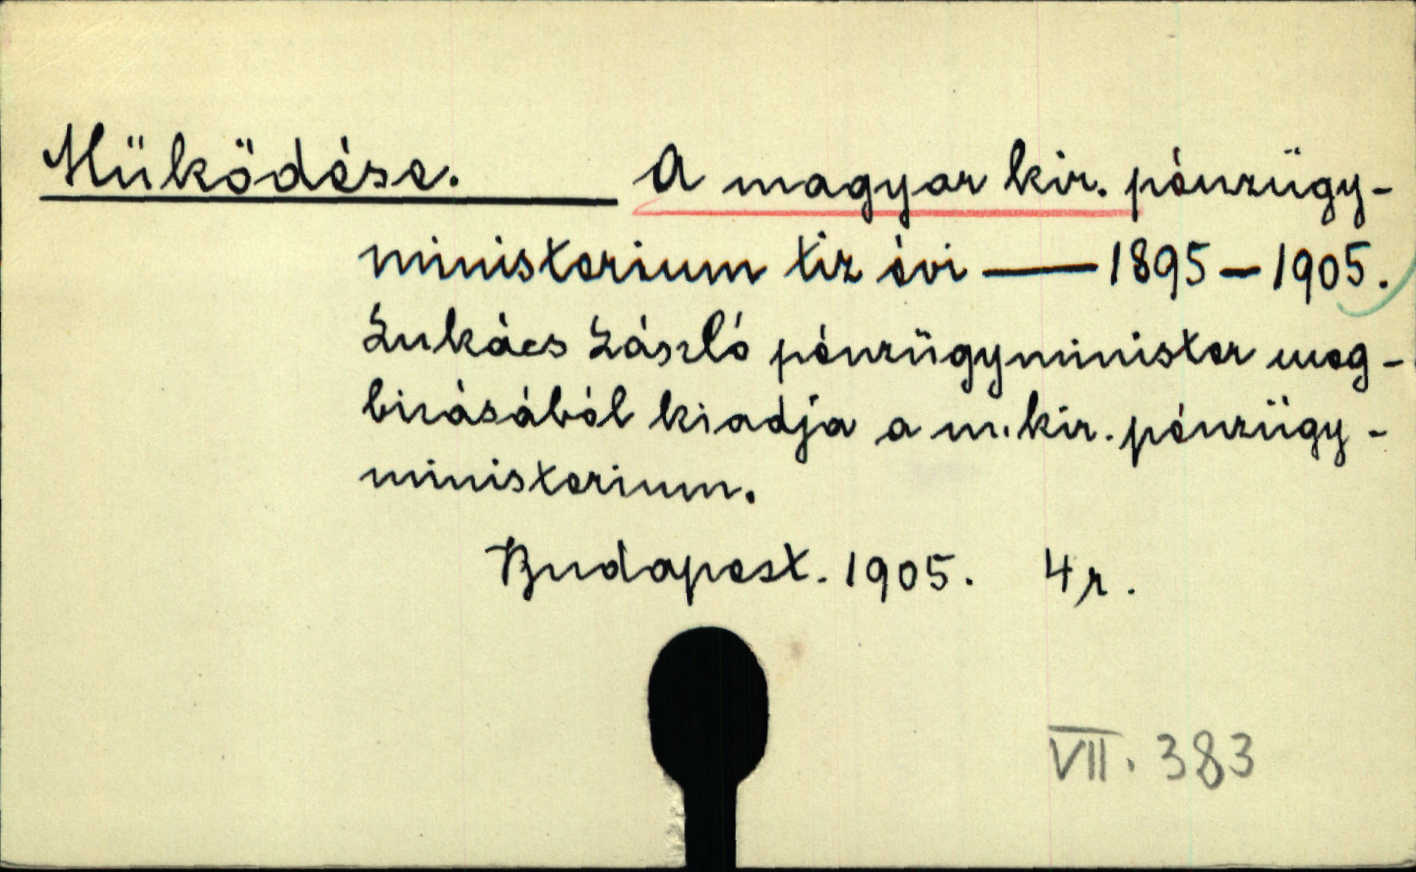 Müködése. A magyar kir. pénzügy-
ministerium tiz évi — 1895 – 1905.
Lukács László pénzügyminister meg-
bizásából kiadja a m. kir. pénzügy-
ministerium.
Budapest. 1905. 4 r.
VII. 383